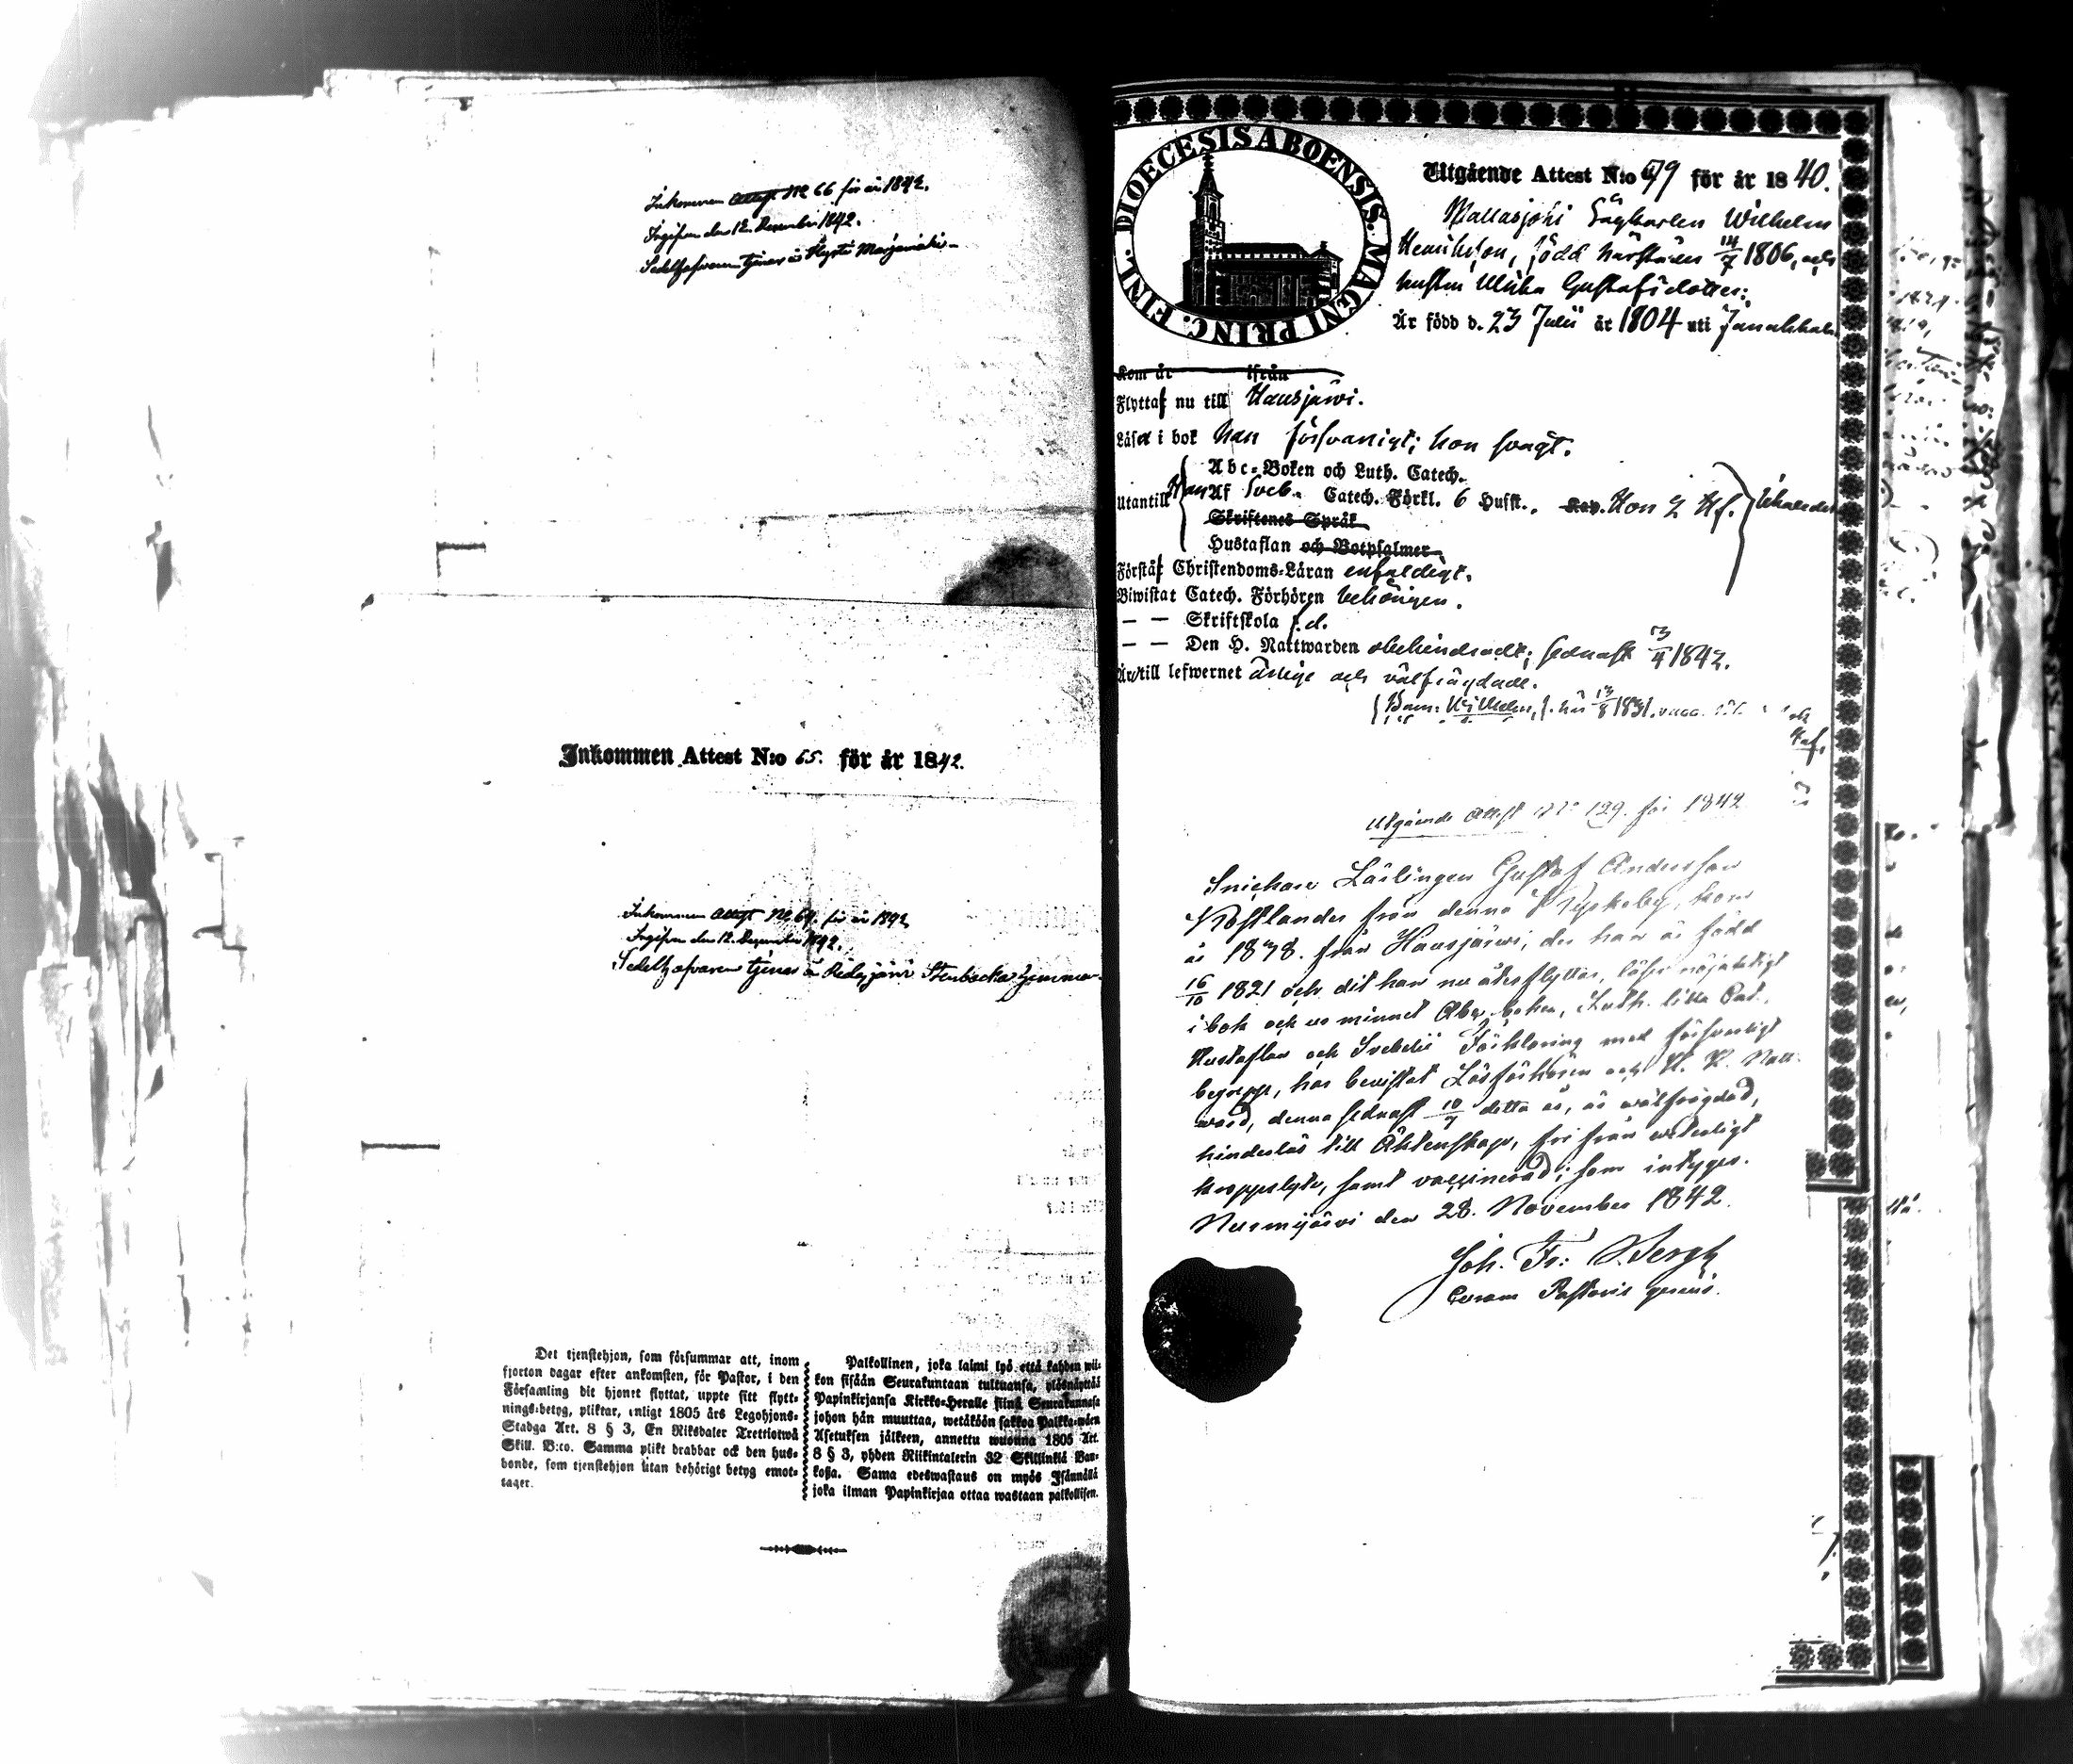 Inkommen Attest No 66 för år 1842.
Ingifven den 12. December 1842.
Sedelhafvaren tjenar i Hyrsti Marjamäki
Inkommen Attest N:o 65. för år 1842.
Inkommen Attest No 64. för år 1842
Ingifven den 12. December 1842.
Sedelhafvaren tjenar å Ridasjärvi
Det tjenstehjon, som försummar att, inom
fjorton dagar efter ankomsten, för Pastor, i den
Församling dit hjonet flyttat, uppte sitt flytt-
nings-betyg, pliktar, enligt 1805 års Legohjons-
Stadga Art. 8 § 3, En Riksdaler Trettiotwå
Skill. B:co. Samma plikt drabbar ock den hus-
bonde, som tjenstehjon utan behörigt betyg emot-
tager.
Palkollinen, joka laimi lyö että kahden wii-
kon sisään Seurakuntaan tultuansa, ylösnäyttää
Papinkirjansa Kirkko-Heralle siinä Seurakunnasa
johon hän muuttaa, wetäköön sakkoa Palkka-wäen
Asetuksen jälkeen, annettu wuonna 1805 Art.
8 § 3, yhden Riikintalerin 32 Skillinkiä Ban-
kosa. Sama edeswastaus on myös Isännällä
joka ilman Papinkirjaa ottaa wastaan palkollisen.
DIOECESIS ABOENSIS. MAGNI PRINC. FINL.
Utgående Attest N:o 79 för år 1840.
Mallasjoki Wilhelm
född härstädes 14/7 1806, och
hustru Ulrika Gustafsdotter;
Är född d. 23 Julii år 1804 uti Janakkala
Kom år ifrån
Flyttaf nu till Hausjärwi.
Läser i bok han försvarligt; hon svagt.
Abc-Boken och Luth. Catech.
Utantill Han Af Sveb. Catech. Förkl. 6 Hufst., Hon 2 Hf.
Skriftenes Språk
Hustaflan och Botpsalmer
Förstår Christendoms-Läran enfaldigt.
Biwistat Catech. Förhören behörigen.
— — Skriftskola d.
— — Den H. Nattwarden obehindradt; sednast 3/4 1842.
Äro till lefwernet ärlige och välfrägdade.
Barn: Wilhelm, f. här 13/8 1831. vacc.
Utgående Attest No 129. för 1842
Snickare Lärlingen Gustaf Andersson
från denna kom
år 1838. från Hausjärwi, der han är född
16/10 1821 och dit han nu återflyttar, läser nöjaktigt
i bok och ur minnet Abc-boken, Luth. lilla Cat.,
Hustaflan och Svebelii Förklaring med försvarligt
begrepp, har bevistat Läsförhören och H. H. Natt-
ward, denna sednast 10/7 detta år, är wälfrägdad,
hinderlös till Äktenskap, fri från weterligt
kroppslyte, samt vaccinerad; som intygas.
Nurmijärvi den 28. November 1842.
Joh. Fr: Bergh
Curam Pastoris gerens.